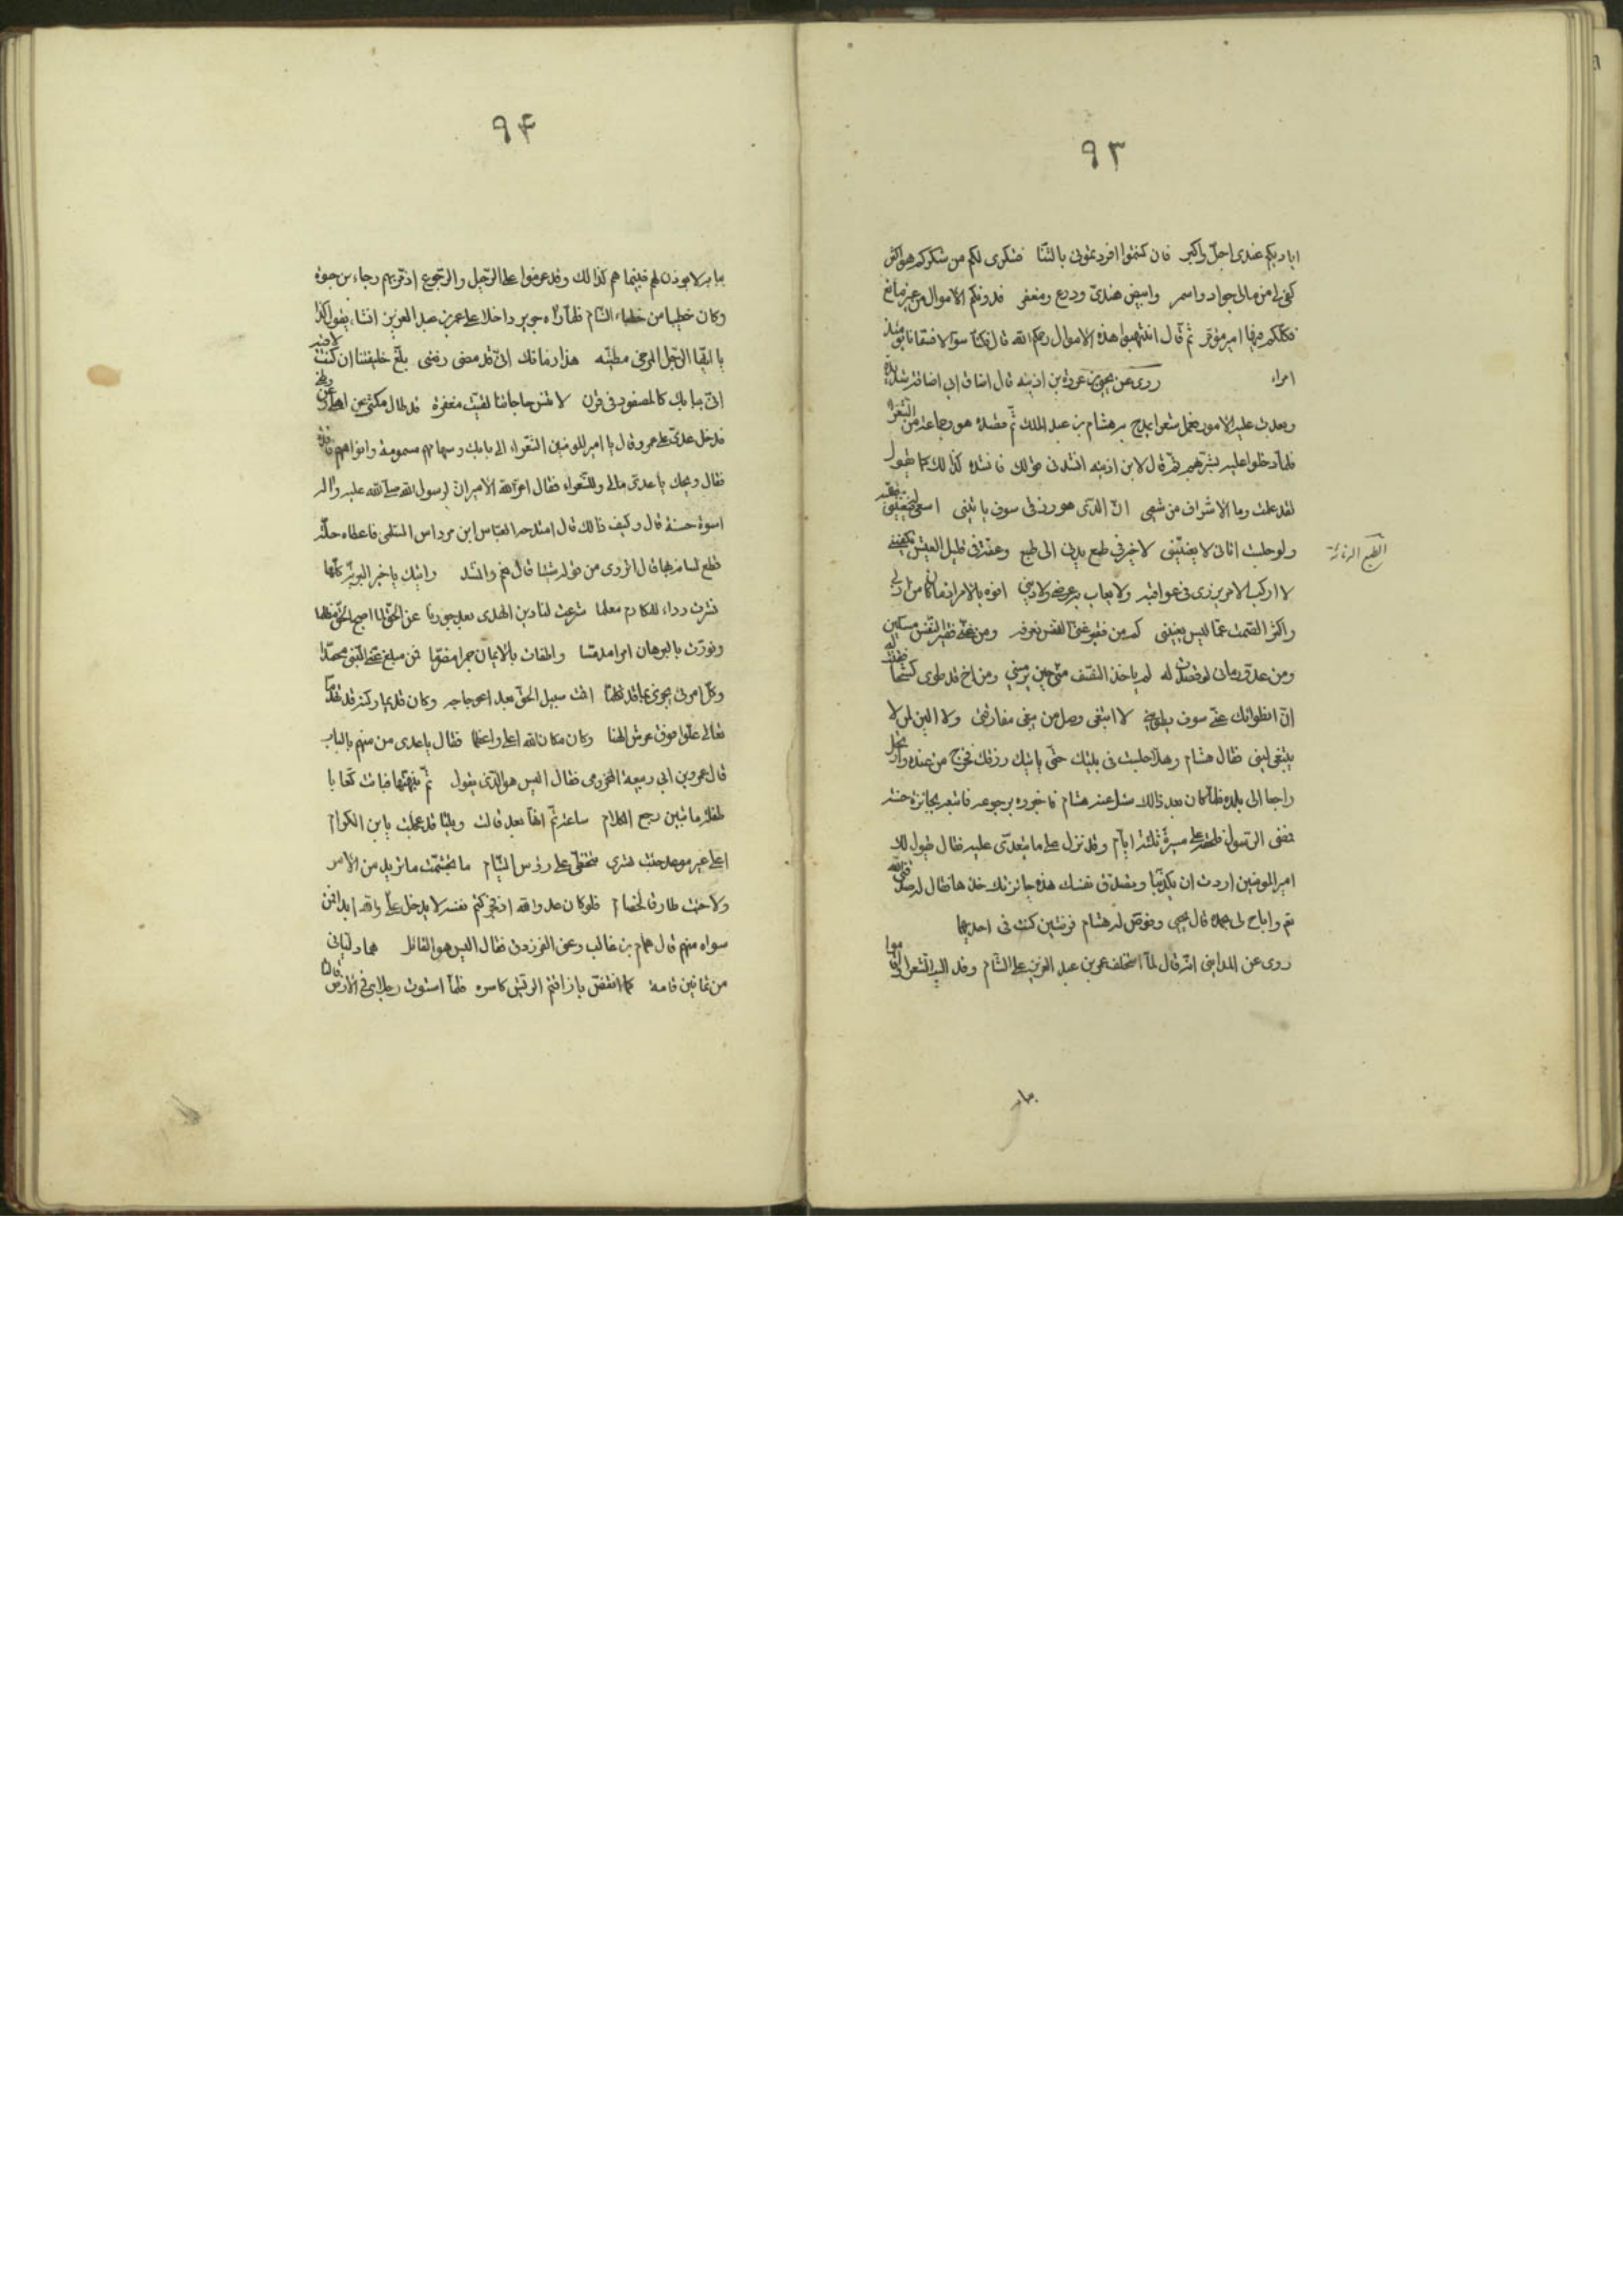 ٩٣
اياديكم عندى اجلّ واكبر فان كنتموا افردتمونى بالثنا فشكرى لكم من شكركم هو اكثر
كفى لى من مالى جواد واسمر وابيض هندىّ ودرع ومغفر فدونكم الاموال من غير مانع
فكلكم فيها امير مؤمّر ثمّ قال انتهبوا هذه الاموال رحمكم الله قال فكنّا سؤالا فبقانا يومئذ
امراء روى عن يحيى بن عروة بن اذينه قال اضاق ابى اضاقة شديدة
وبعدت عليه الامور فعمل شعرا يمدح به هشام بن عبد الملك ثمّ قصده هو وجماعة من الشعراء
فلمّا دخلوا عليه نسبهم ثمّ قال لابن اذينه انشدنى قولك فانشده كذالك كما يقول
لقد علمت وما الاشراف من شيمى انّ الذى هو رزقى سوف ياتينى اسعى له فيعنّينى تطلّبه
ولو جلست اتانى لا يعنّينى لا خير فى طمع يدنى الى طبع وعفّة فى قليل العيش تكفينى
الطبع الدنائة
لا اركب الامر يزرى فى عواقبه ولا يعاب به عرضى ولا دينى
واكثر الصّمت عمّا ليس يعنينى كم من فقير غنىّ النفس نعرفه ومن غنىّ فقير النّفس مسكين
ومن عدوّ رمانى لو قصدت له لم ياخذ النّصف منّى حين يرمينى ومن اخ قد طوى كشحا فقلت له
انّ انطوائك عنّى سوف يطوينى لا ابتغى وصل من يبغى مفارقتى ولا الين لمن لا
يبتغى لينى فقال هشام وهلّا جلست فى بيتك حتّى ياتيك رزقك فخرج من عنده وارتحل
راجعا الى بلده فلمّا كان بعد ذالك سئل عنه هشام فاخبروه برجوعه فاتبعه بجائزة حسنة
فمضى الرّسول فلحقه على مسيرة ثلثة ايّام وقد نزل على ما يتغدّى عليه فقال يقول لك
امير المومنين اردت ان تكذّبنا وتصدّق نفسك هذه جائزتك خذها فقال له صدقنى الله
قال يحيى وفرض له هشام فريضتين كنت فى احديهما
روى عن المداينى انّه قال لمّا استخلف عمر بن عبد العزيز على الشّام وفد اليه الشّعراء واقاموا
ببابه
٩۴
ببابه لا يوذن لهم فبينما هم كذالك وقد عزموا على الرّحيل والرّجوع اذ مرّ بهم رجاء بن حيوه
وكان خطيبا من خطباء الشّام فلمّا رآه جرير داخلا على عمر بن عبد العزيز انشاء يقول كذا
يا ايّها الرّجل المرخى مطيّته هذا زمانك انّى قد مضى زمنى بلّغ خليفتنا ان كنت لاقيه
انّى ببابك كالمصفود فى قرن لا تنس حاجاتنا لقيت مغفرة قد طال مكثى عن اهلى وعن وطنى
فدخل عدىّ على عمر وقال يا امير المومنين الشّعراء الى بابك وسهامهم مسمومة وافواههم نافذة
فقال ويحك يا عدىّ مالى وللشّعراء فقال اعزّ الله الامير انّ لرسول الله صلّى الله عليه واله
اسوة حسنة قال وكيف ذالك قال امتدحه العبّاس ابن مرداس السّلمى فاعطاه حلّة
قطع لسانه بها قال اتروى من قوله شيئا قال نعم وانشد رايتك يا خير البريّة كلّها
نشرت رداء للمكارم معلما شرعت لنا دين الهدى بعد جورنا عن الحقّ لمّا اصبح الحقّ مظلما
ونوّرت بالبرهان امرا مدمّسا واطفات بالايمان جمرا مضرّما فمن مبلغ عنّى النّبى محمّدا
وكلّ امرئ يجزى بما قد تكلّما اقمت سبيل الحقّ بعد اعوجاجه وكان قديما ركنه قد تهدّما
تعالى علوّا فوق عرش الهنا وكان مكان الله اعلى واعظما فقال يا عدى من منهم بالباب
قال عمرو بن ابى ربيعة المخزومى فقال اليس هو الّذى يقول ثمّ نبّهتها فباتت كعابا
طفلة ما تبين رجع الكلام ساعة ثمّ انّها بعد قالت ويلتا قد عجلت يابن الكرام
اعلى غير موعد جئت تسرى تتخطّى على رؤس النّيام ما تجشّمت ما تريد من الامر
ولا جئت طارقا لخصام فلو كان عدو الله اذ فجر كتم نفسه لا يدخل علىّ والله ابدا فمن
سواه منهم قال همام بن غالب وعنى الفرزدق فقال اليس هو القائل هما دلّيانى
من ثمانين قامة كما انقضّ باز اقتم الرّيش كاسره فلمّا استوت رجلاى فى الارض قالتا